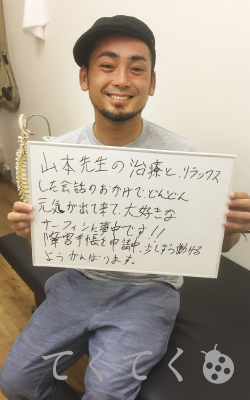 山本先生の治療と、リラックス
した会話のおかげで、どんどん
元気が出て来て、大好きな
サーフィンに夢中です!!
障害手帳を申請中、少しずつ働ける
ようがんばります。
てくてく